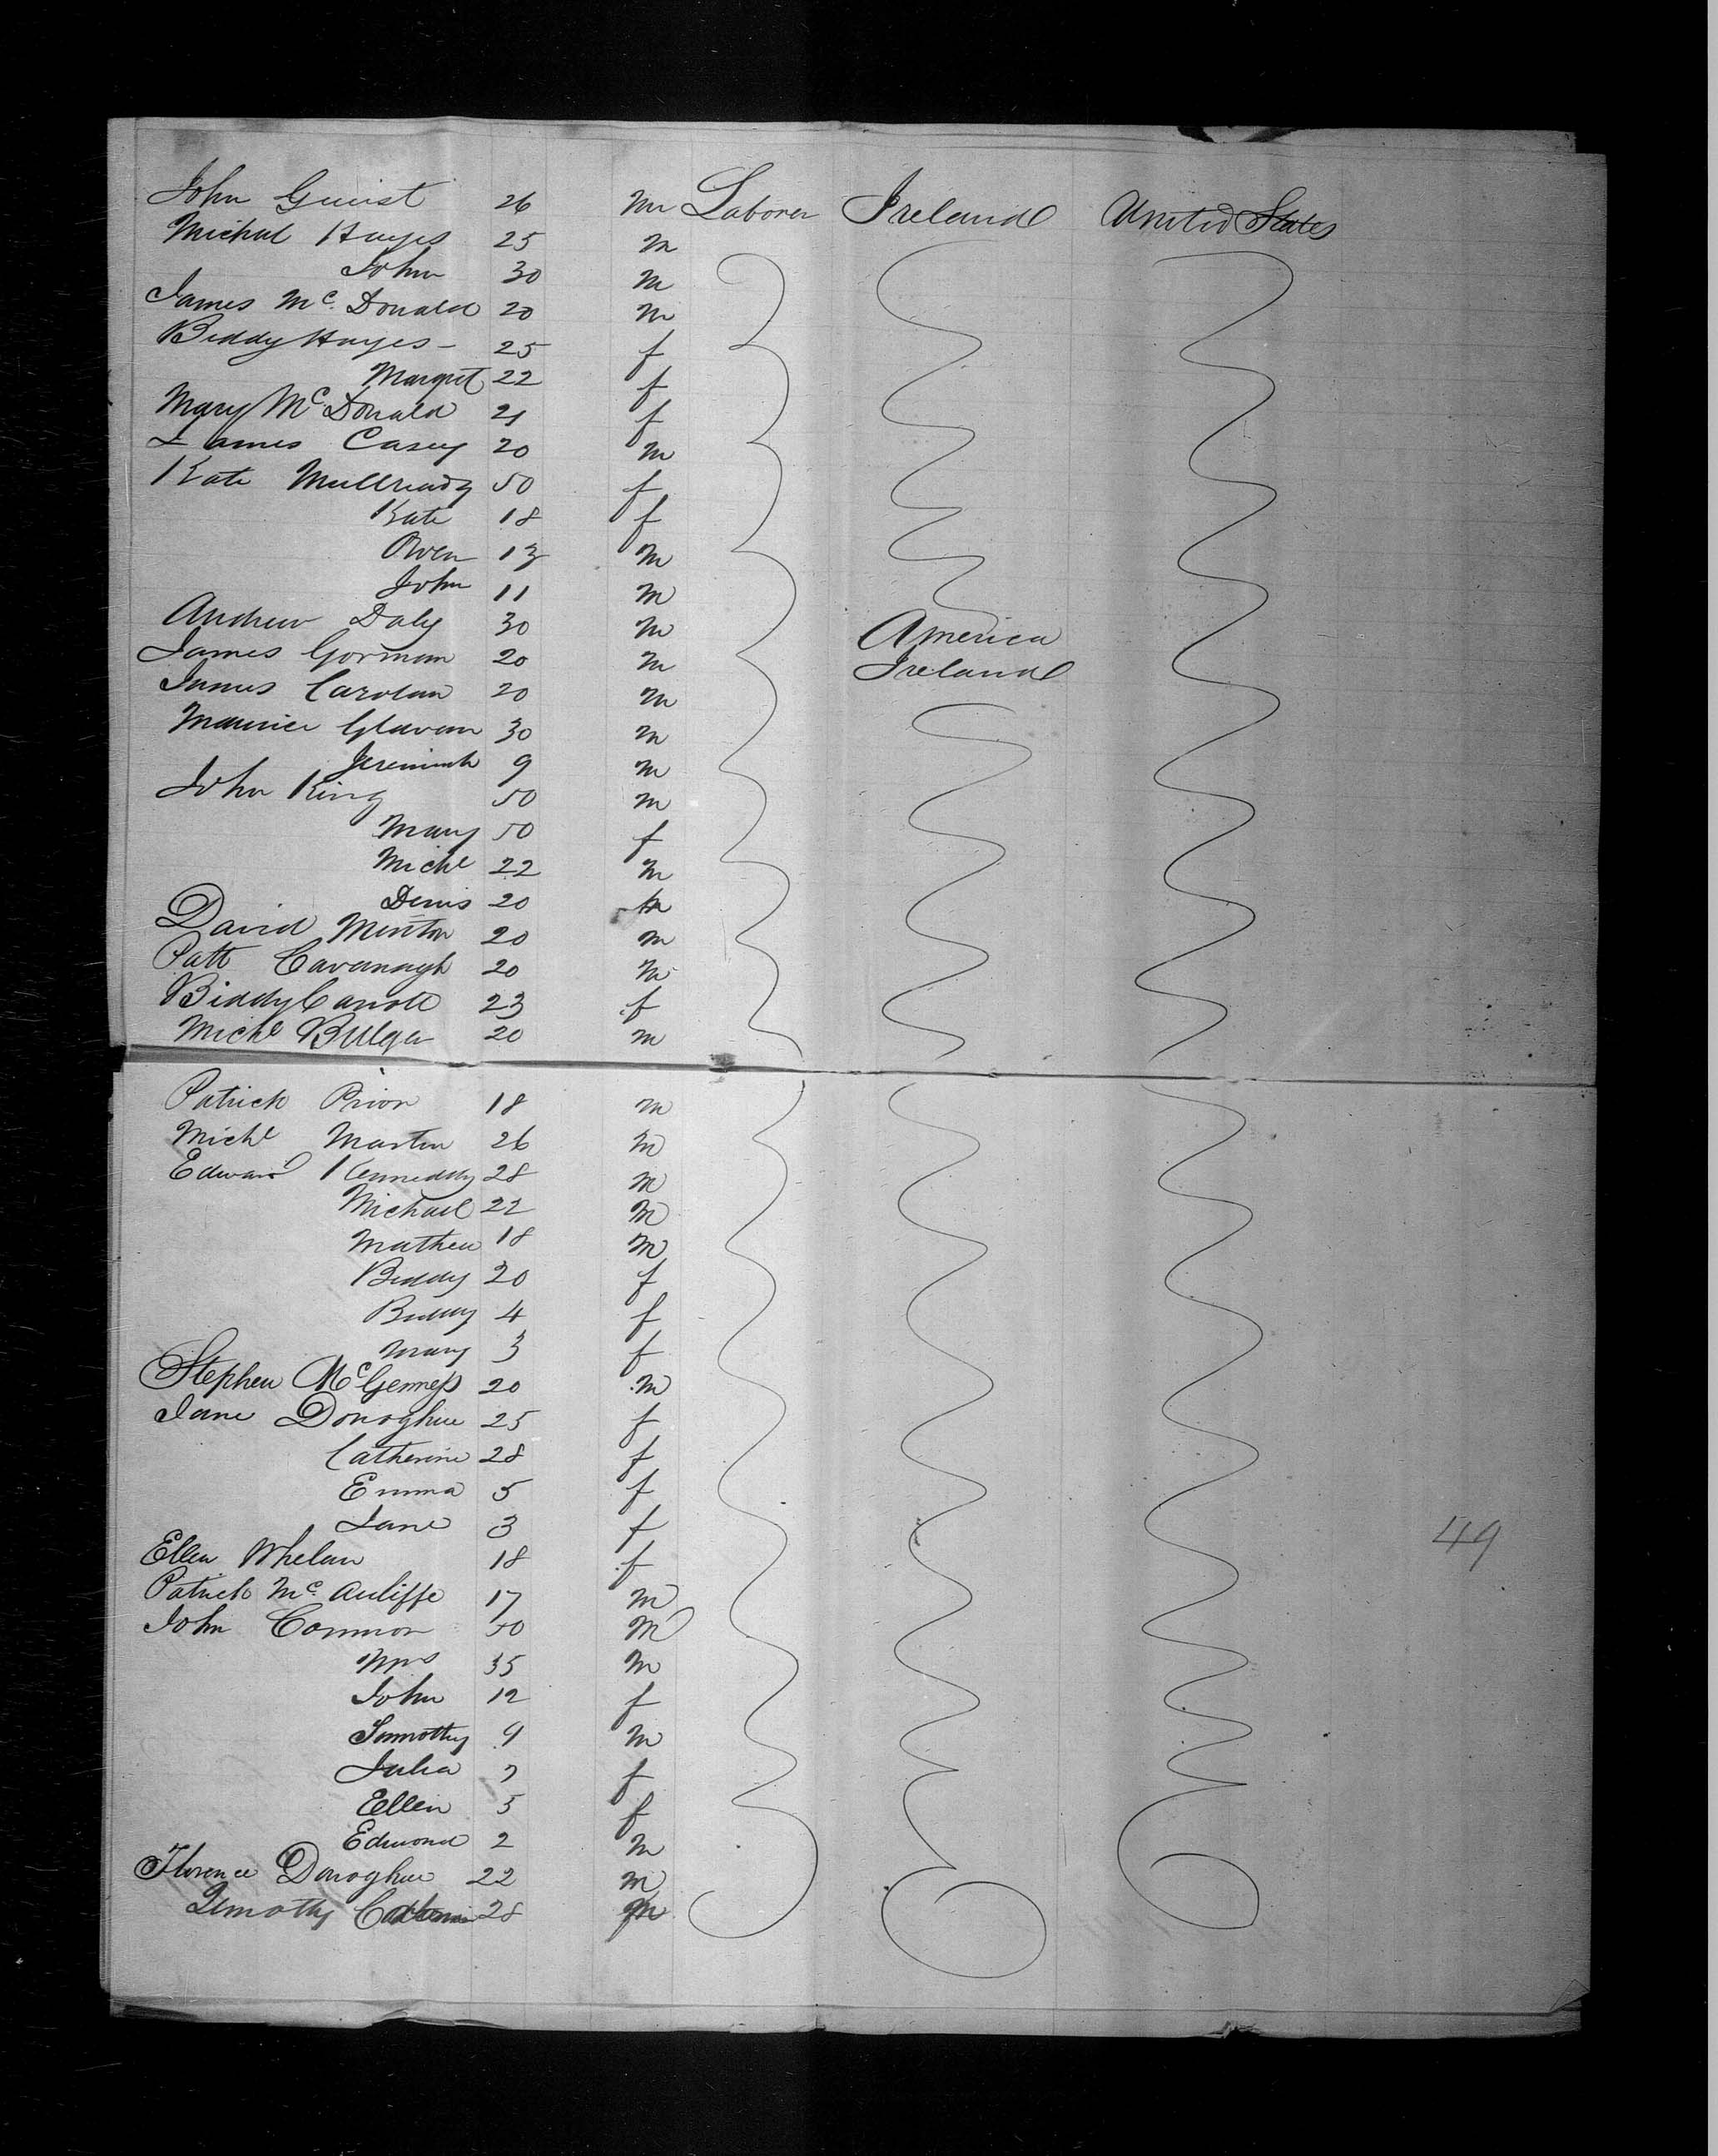 John Guirist 26 m Laborer Ireland United States
Michal Hayes 25 m
John 30 m
James Mc. Donald 20 m
Biddy Hayes - 25 f
Margret 22 f
Mary McDonald 21 f
James Casey 20 m
Kate Mullready 50 f
Kate 18 f
Owen 13 m
John 11 m
Andrew Daly 30 m America
James Gorman 20 m Ireland
James Carolan 20 m
Maurice Glavan 30 m
Jeremiah 9 m
John King 50 m
Mary 50 f
Michl 22 m
Denis 20 m
David Minton 20 m
Patt Cavanagh 20 m
Biddy Carroll 23 f
Michl Bulger 20 m
Patrick Prior 18 m
Michl Martin 26 m
Edward Kenneddy 28 m
Michael 22 m
Mathew 18 m
Biddy 20 f
Biddy 4 f
Mary 3 f
Stephen McGenness 20 m
Jane Donoghue 25 f
Catherine 28 f
Emma 5 f
Jane 3 f
Ellen Whelan 18 f
49
Patrick Mc. Auliffe 17 m
John Connor 50 m
Mrs 35 m
John 12 f
Timothy 9 m
Julia 7 f
Ellen 5 f
Edmond 2 m
Florence Donoghue 22 m
Timothy 28 m